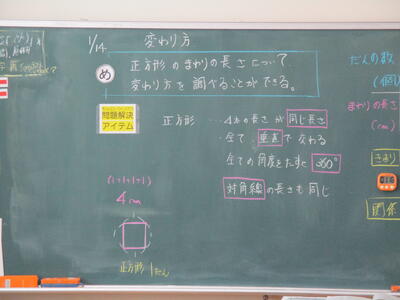 1/14 変わり方
め
正方形のまわりの長さについて
変わり方を調べることができる。
問題解決
アイテム
正方形 …4本の長さが同じ長さ
・全て垂直で交わる
・全ての角度をたすと360°
対角線の長さも同じ
(1+1+1+1)
4cm
正方形 1だん
だんの数
(個)
まわりの長さ
(cm)
きまり
関係